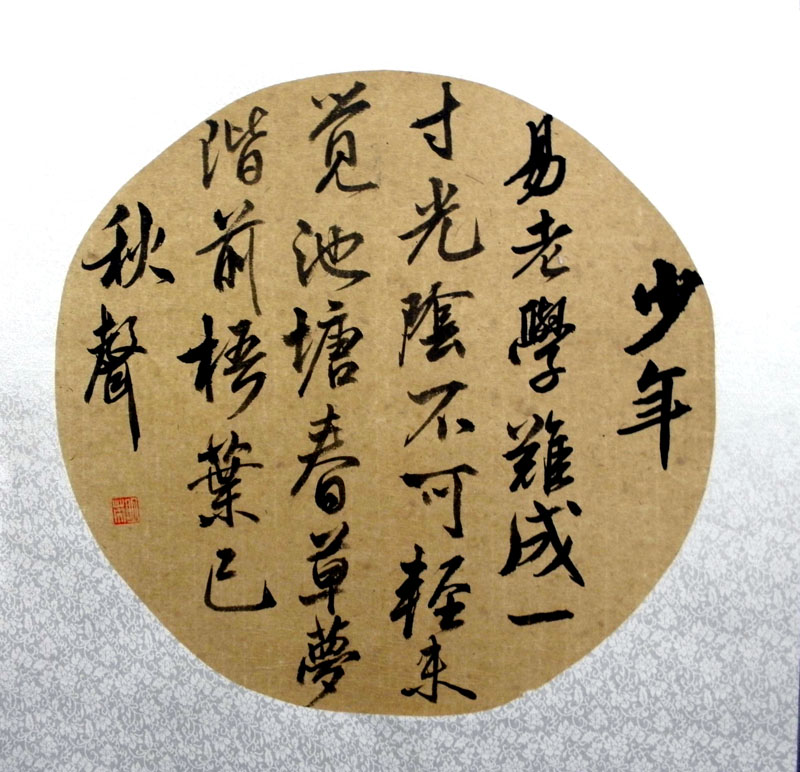 少年
易老學難成一
寸光陰不可輕未
觉池塘春草夢
階前梧葉已
秋聲